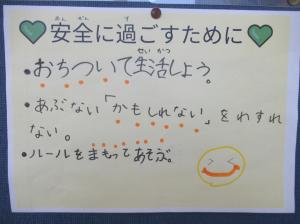 安全に過ごすために
あんぜん す
•おちついて生活しよう。
せいかつ
•あぶない「かもしれない」をわすれ
ない。
•ルールをまもってあそぶ。